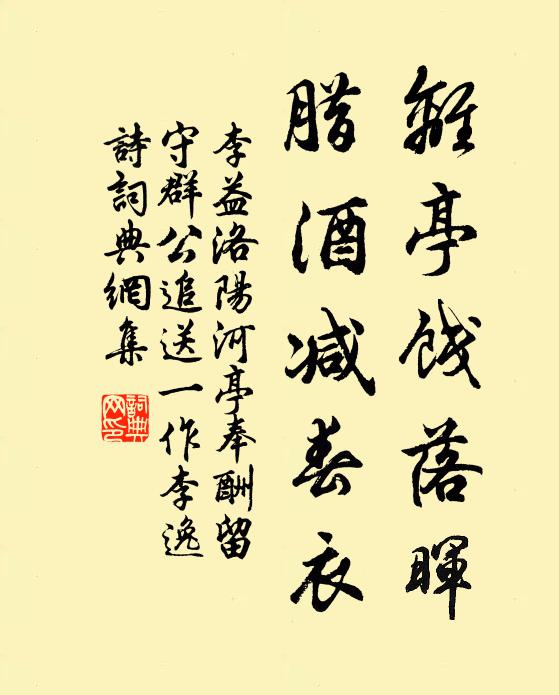 離亭餞落暉
腊酒减春衣
李益洛陽河亭奉酬留
守群公追送一作李逸
詩詞典網集
詞典
网印